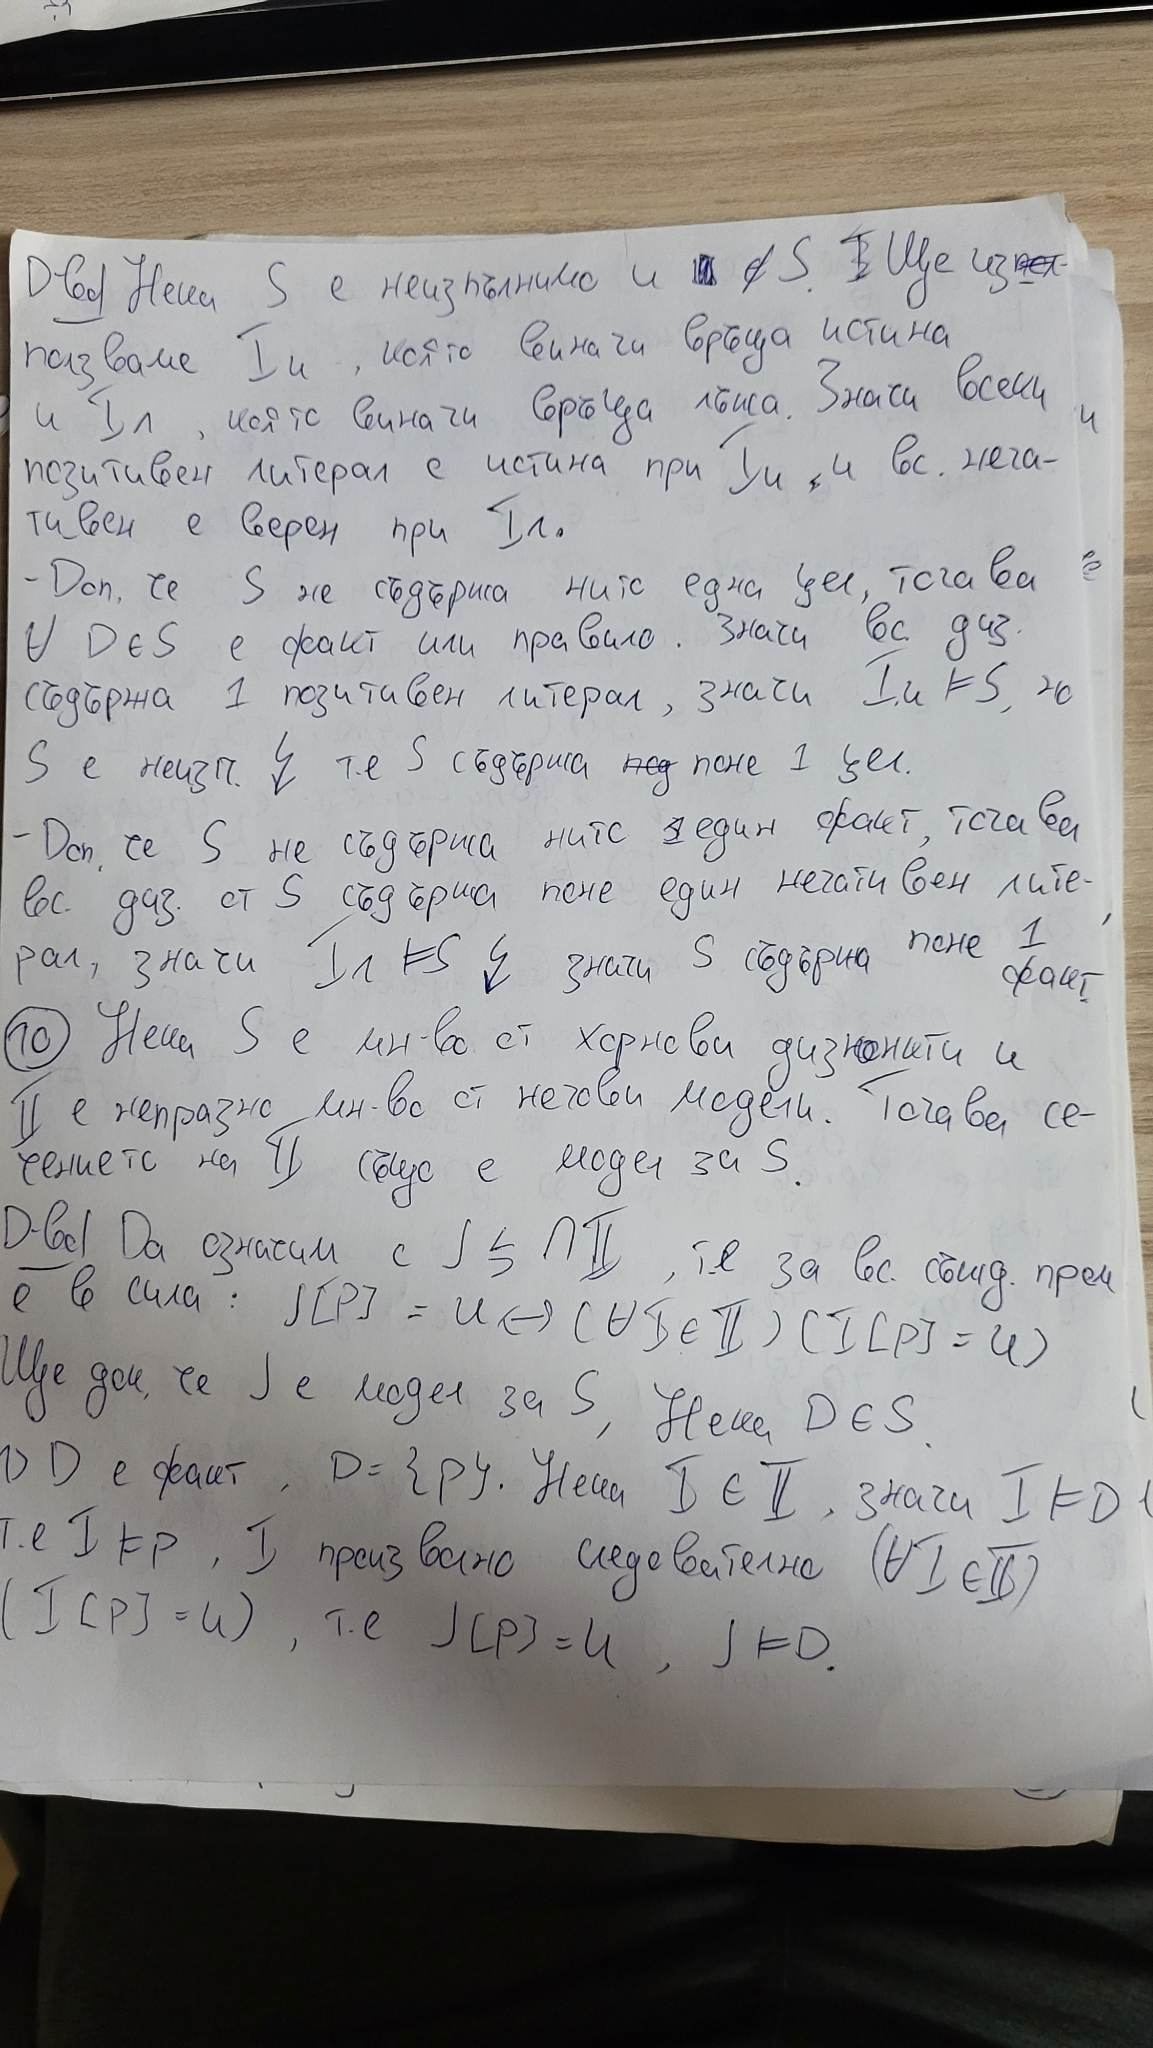 D-во Нека S е неизпълнимо и ■ ∉ S. Ще из-
ползваме Iи, която винаги връща истина
и Iл, която винаги връща лъжа. Значи всеки
позитивен литерал е истина при Iи, и вс. нега-
тивен е верен при Iл.
- Доп. че S не съдържа нито една цел, тогава
∀ D∈S е факт или правило. Значи вс. диз.
съдържа 1 позитивен литерал, значи Iи ⊨ S, но
S е неизп. ↯ т.е S съдържа поне 1 цел.
- Доп. че S не съдържа нито един факт, тогава
вс. диз. от S съдържа поне един негативен лите-
рал, значи Iл ⊨ S ↯ значи S съдържа поне 1
факт.
⑩ Нека S е мн-во от хорнови дизюнкти и
𝕀 е непразно мн-во от негови модели. Тогава се-
чението на 𝕀 също е модел за S.
D-во Да означим с J ⇆ ∩𝕀, т.е за вс. съжд. пром
е в сила: J[p] = и ↔ (∀I∈𝕀)(I[p] = и)
Ще док. че J е модел за S, Нека D∈S.
1) D е факт, D = {p}. Нека I ∈ 𝕀, значи I ⊨ D
т.е I ⊨ p, I произволно следователно (∀I∈𝕀)
(I[p] = и), т.е J[p] = и, J ⊨ D.